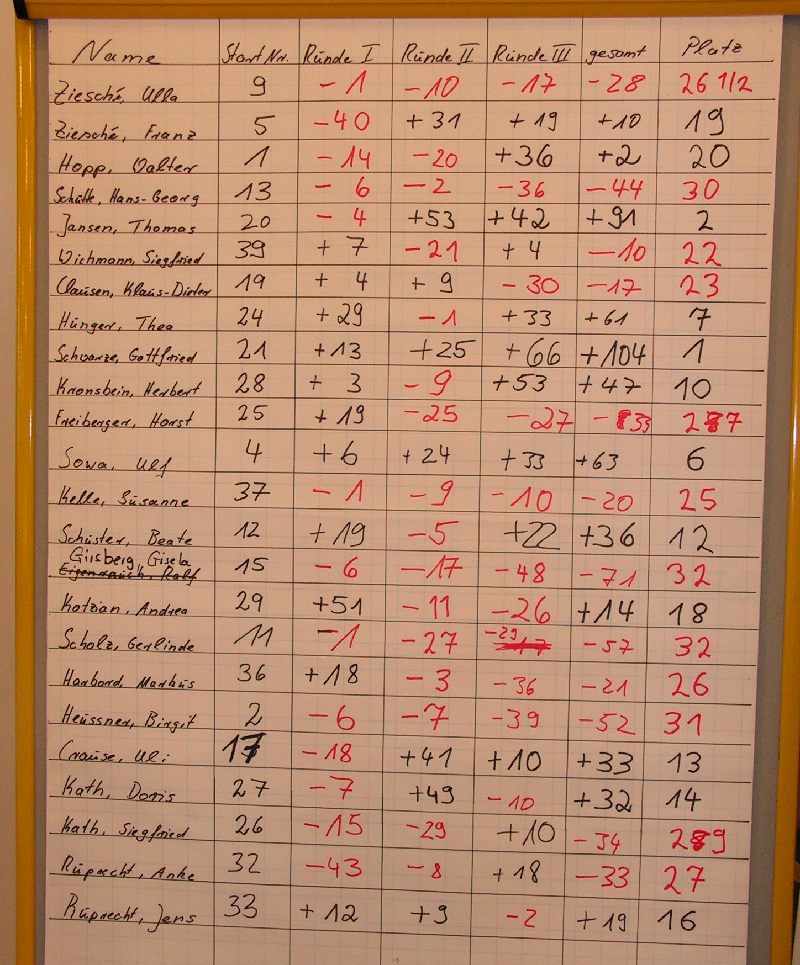 Name Start Nr. Runde I Runde II Runde III gesamt Platz
Ziesché, Ulla 9 -1 -10 -17 -28 26 1/2
Ziesché, Franz 5 -40 +31 +19 +10 19
Hopp, Walter 1 -14 -20 +36 +2 20
Schütt, Hans-Georg 13 -6 -2 -36 -44 30
Jansen, Thomas 20 -4 +53 +42 +91 2
Wichmann, Siegfried 39 +7 -21 +4 -10 22
Clausen, Klaus-Dieter 19 +4 +9 -30 -17 23
Hünger, Thea 24 +29 -1 +33 +61 7
Schwarze, Gottfried 21 +13 +25 +66 +104 1
Kronsbein, Herbert 28 +3 -9 +53 +47 10
Freiberger, Horst 25 +19 -25 -27 -33 27
Sowa, Ulf 4 +6 +24 +33 +63 6
Kelle, Susanne 37 -1 -9 -10 -20 25
Schuster, Beate 12 +19 -5 +22 +36 12
Girsberg, Gisela
Eigenrauch, Ralf 15 -6 -17 -48 -71 32
Katzian, Andrea 29 +51 -11 -26 +14 18
Scholz, Gerlinde 11 -1 -27 -29 -57 32
Harbord, Markus 36 +18 -3 -36 -21 26
Heussner, Birgit 2 -6 -7 -39 -52 31
Crause, Uli 17 -18 +41 +10 +33 13
Kath, Doris 27 -7 +49 -10 +32 14
Kath, Siegfried 26 -15 -29 +10 -34 29
Ruprecht, Anke 32 -43 -8 +18 -33 27
Ruprecht, Jens 33 +12 +9 -2 +19 16